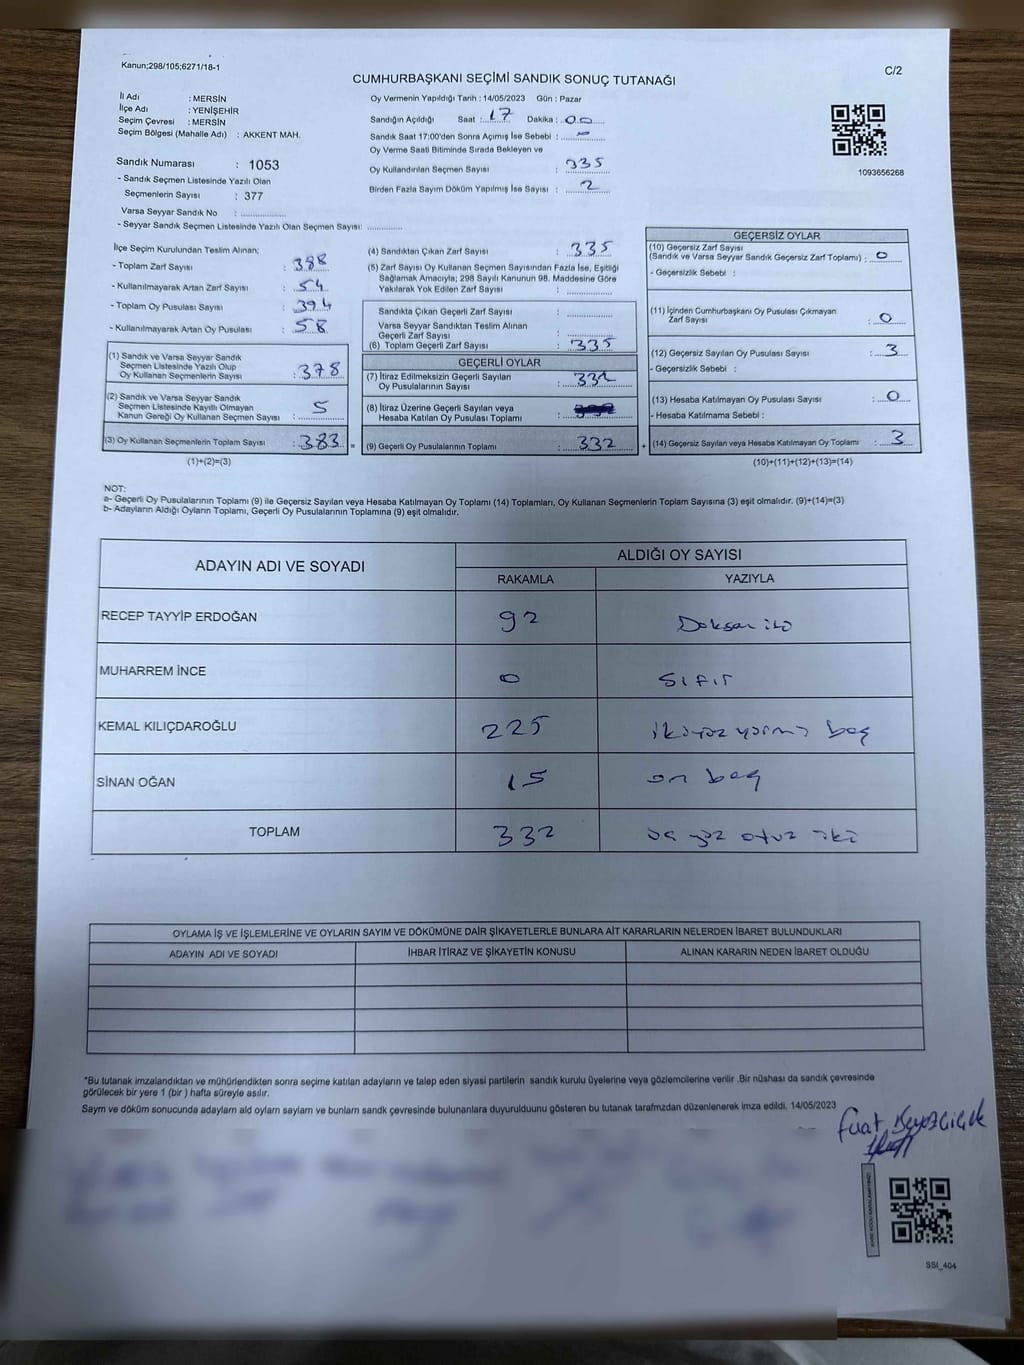 Kanun;298/105;6271/18-1
C/2
CUMHURBAŞKANI SEÇİMİ SANDIK SONUÇ TUTANAĞI
İl Adı : MERSİN
İlçe Adı : YENİŞEHİR
Seçim Çevresi : MERSİN
Seçim Bölgesi (Mahalle Adı) : AKKENT MAH.
Sandık Numarası : 1053
- Sandık Seçmen Listesinde Yazılı Olan
Seçmenlerin Sayısı : 377
Varsa Seyyar Sandık No :
- Seyyar Sandık Seçmen Listesinde Yazılı Olan Seçmen Sayısı:
Oy Vermenin Yapıldığı Tarih : 14/05/2023 Gün : Pazar
Sandığın Açıldığı Saat : 17 Dakika : 00
Sandık Saat 17:00'den Sonra Açımış İse Sebebi : -
Oy Verme Saati Bitiminde Sırada Bekleyen ve
Oy Kullandırılan Seçmen Sayısı : 335
Birden Fazla Sayım Döküm Yapılmış İse Sayısı : 2
1093656268
İlçe Seçim Kurulundan Teslim Alınan;
- Toplam Zarf Sayısı : 388
- Kullanılmayarak Artan Zarf Sayısı : 54
- Toplam Oy Pusulası Sayısı : 394
- Kullanılmayarak Artan Oy Pusulası : 58
(1) Sandık ve Varsa Seyyar Sandık
Seçmen Listesinde Yazılı Olup
Oy Kullanan Seçmenlerin Sayısı : 378
(2) Sandık ve Varsa Seyyar Sandık
Seçmen Listesinde Kayıtlı Olmayan
Kanun Gereği Oy Kullanan Seçmen Sayısı : 5
(3) Oy Kullanan Seçmenlerin Toplam Sayısı : 383 =
(1)+(2)=(3)
(4) Sandıktan Çıkan Zarf Sayısı : 335
(5) Zarf Sayısı Oy Kullanan Seçmen Sayısından Fazla İse, Eşitliği
Sağlamak Amacıyla; 298 Sayılı Kanunun 98. Maddesine Göre
Yakılarak Yok Edilen Zarf Sayısı :
Sandıkta Çıkan Geçerli Zarf Sayısı :
Varsa Seyyar Sandıktan Teslim Alınan
Geçerli Zarf Sayısı :
(6) Toplam Geçerli Zarf Sayısı : 335
GEÇERLİ OYLAR
(7) İtiraz Edilmeksizin Geçerli Sayılan
Oy Pusulalarının Sayısı : 332
(8) İtiraz Üzerine Geçerli Sayılan veya
Hesaba Katılan Oy Pusulası Toplamı :
(9) Geçerli Oy Pusulalarının Toplamı : 332 +
GEÇERSİZ OYLAR
(10) Geçersiz Zarf Sayısı
(Sandık ve Varsa Seyyar Sandık Geçersiz Zarf Toplamı) : 0
- Geçersizlik Sebebi :
(11) İçinden Cumhurbaşkanı Oy Pusulası Çıkmayan
Zarf Sayısı : 0
(12) Geçersiz Sayılan Oy Pusulası Sayısı : 3
- Geçersizlik Sebebi :
(13) Hesaba Katılmayan Oy Pusulası Sayısı : 0
- Hesaba Katılmama Sebebi :
(14) Geçersiz Sayılan veya Hesaba Katılmayan Oy Toplamı : 3
(10)+(11)+(12)+(13)=(14)
NOT:
a- Geçerli Oy Pusulalarının Toplamı (9) ile Geçersiz Sayılan veya Hesaba Katılmayan Oy Toplamı (14) Toplamları, Oy Kullanan Seçmenlerin Toplam Sayısına (3) eşit olmalıdır. (9)+(14)=(3)
b- Adayların Aldığı Oyların Toplamı, Geçerli Oy Pusulalarının Toplamına (9) eşit olmalıdır.
ADAYIN ADI VE SOYADI
ALDIĞI OY SAYISI
RAKAMLA YAZIYLA
RECEP TAYYİP ERDOĞAN 92 Doksan iki
MUHARREM İNCE 0 Sıfır
KEMAL KILIÇDAROĞLU 225 ikiyüz yirmi beş
SİNAN OĞAN 15 on beş
TOPLAM 332 üç yüz otuz iki
OYLAMA İŞ VE İŞLEMLERİNE VE OYLARIN SAYIM VE DÖKÜMÜNE DAİR ŞİKAYETLERLE BUNLARA AİT KARARLARIN NELERDEN İBARET BULUNDUKLARI
ADAYIN ADI VE SOYADI İHBAR İTİRAZ VE ŞİKAYETİN KONUSU ALINAN KARARIN NEDEN İBARET OLDUĞU
*Bu tutanak imzalandıktan ve mühürlendikten sonra seçime katılan adayların ve talep eden siyasi partilerin sandık kurulu üyelerine veya gözlemcilerine verilir .Bir nüshası da sandık çevresinde
görülecek bir yere 1 (bir ) hafta süreyle asılır.
Sayım ve döküm sonucunda adaylarn ald oylarn saylarn ve bunlarn sandk çevresinde bulunanlara duyurulduunu gösteren bu tutanak tarafmzdan düzenlenerek imza edildi. 14/05/2023
Fuat
SSI_404